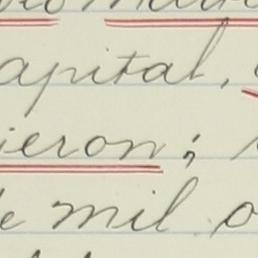 apital,
ieron;
e mil o